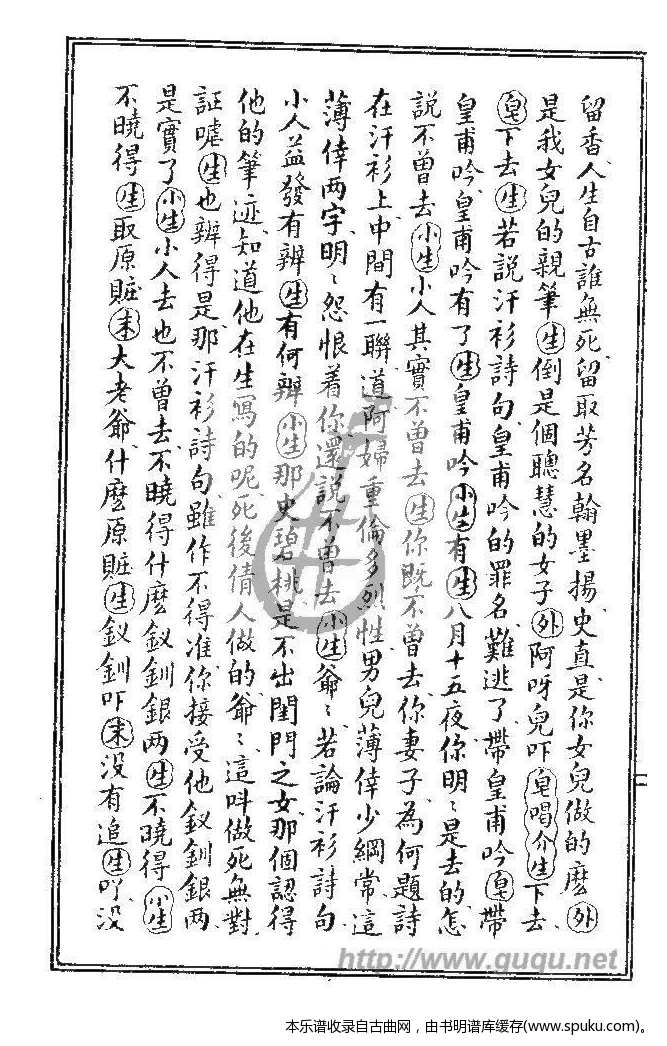 留香人生自古誰無死留取芳名翰墨揚史直是你女兒做的麽外
是我女兒的親筆生倒是個聰慧的女子外阿呀兒吓皂喝介生下去
皂下去生若說汗衫詩句皇甫吟的罪名難逃了帶皇甫吟皂帶
皇甫吟皇甫吟有了生皇甫吟小生有生八月十五夜你明〻是去的怎
說不曾去小生小人其實不曾去生你既不曾去你妻子為何題詩
在汗衫上中間有一聯道阿婦重倫多烈性男兒薄倖少綱常這
薄倖两字明〻怨恨着你還說不曾去小生爺〻若論汗衫詩句
小人益發有辨生有何辨小生那史碧桃是不出閨門之女那個認得
他的筆迹知道他在生寫的呢死後倩人做的爺〻這呌做死無對
証嘘生也辨得是那汗衫詩句雖作不得准你接受他釵釧銀两
是實了小生小人去也不曾去不曉得什麽釵釧銀两生不曉得小生
不曉得生取原賍末大老爺什麽原賍生釵釧吓末没有追生吖没
http://www.guqu.net
本乐谱收录自古曲网，由书明谱库缓存(www.spuku.com)。